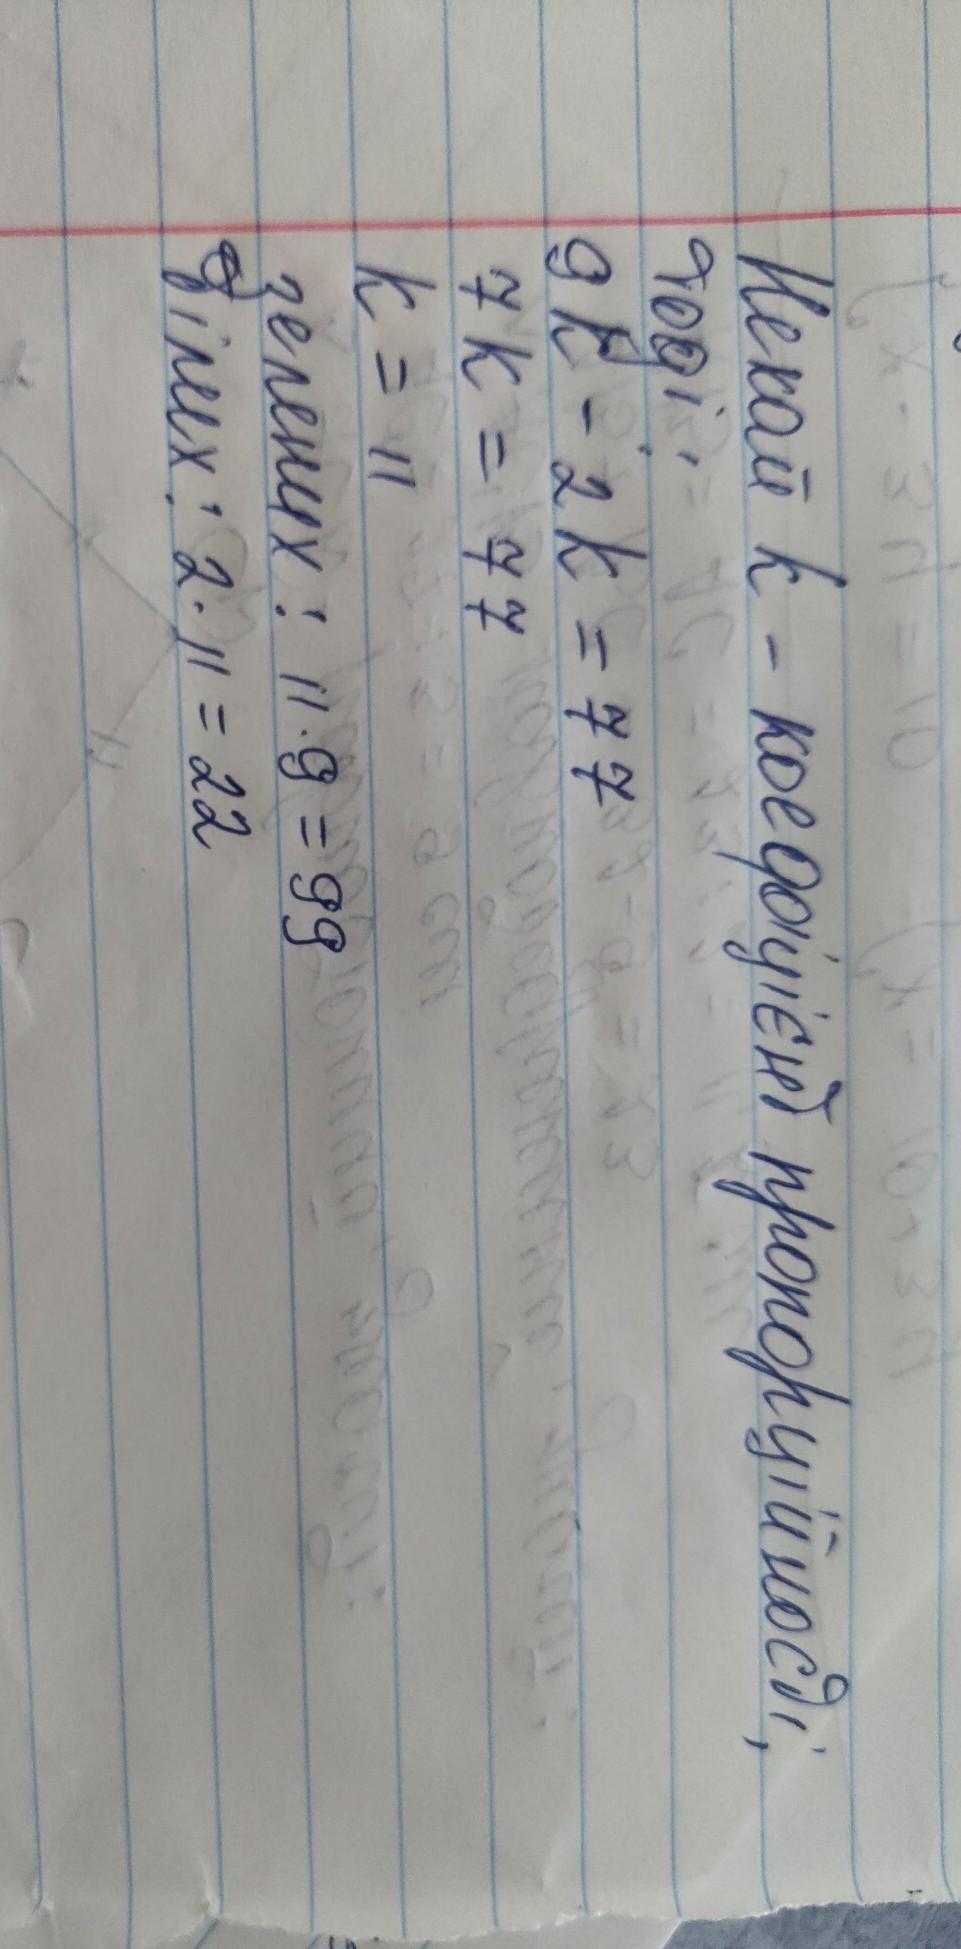 Нехай k - коефіцієнт пропорційності,
тоді:
9k - 2k = 77
7k = 77
k = 11
зелених: 11·9 = 99
білих: 2·11 = 22